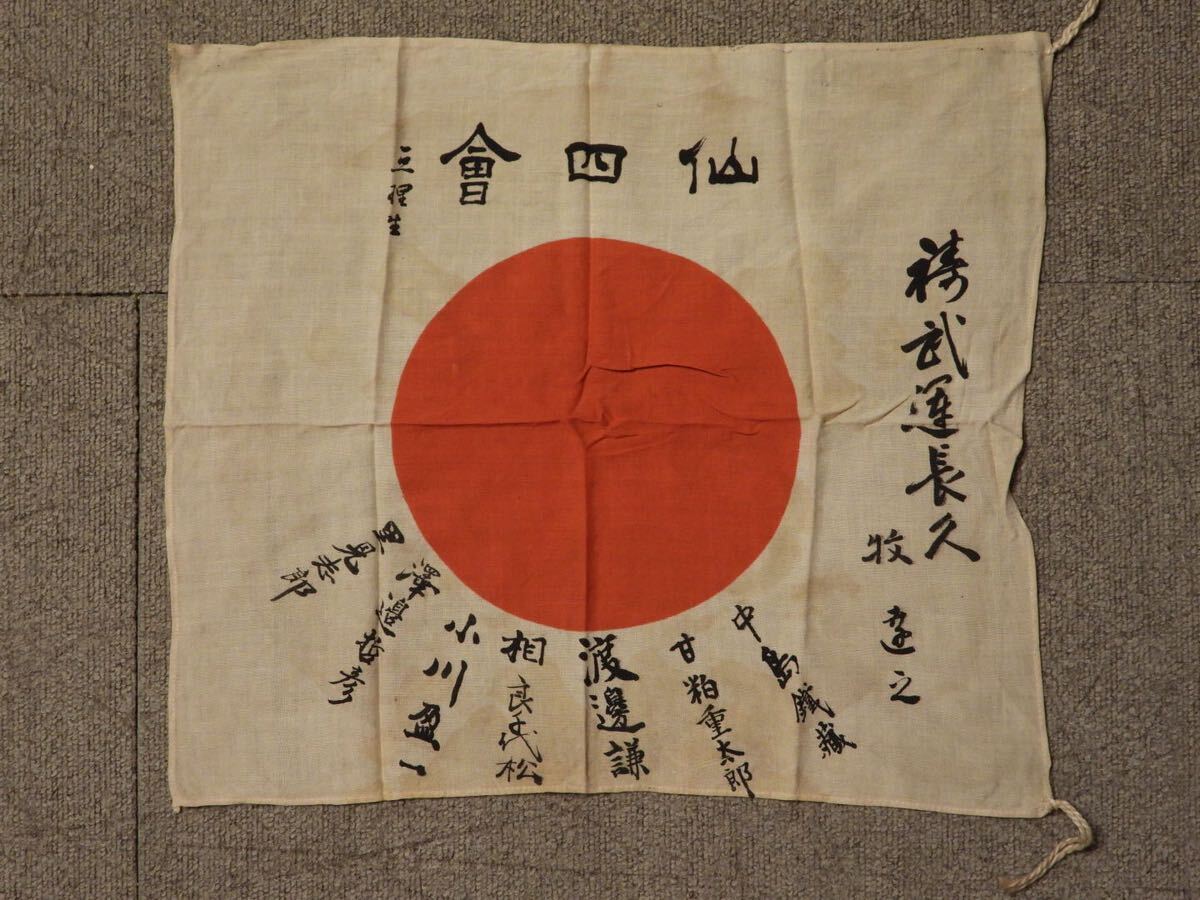 仙四會
祷武運長久
牧達之
中島鐵藏
甘粕重太郎
渡邊謙
相良千代松
小川盈一
澤邊哲彦
里見志郎